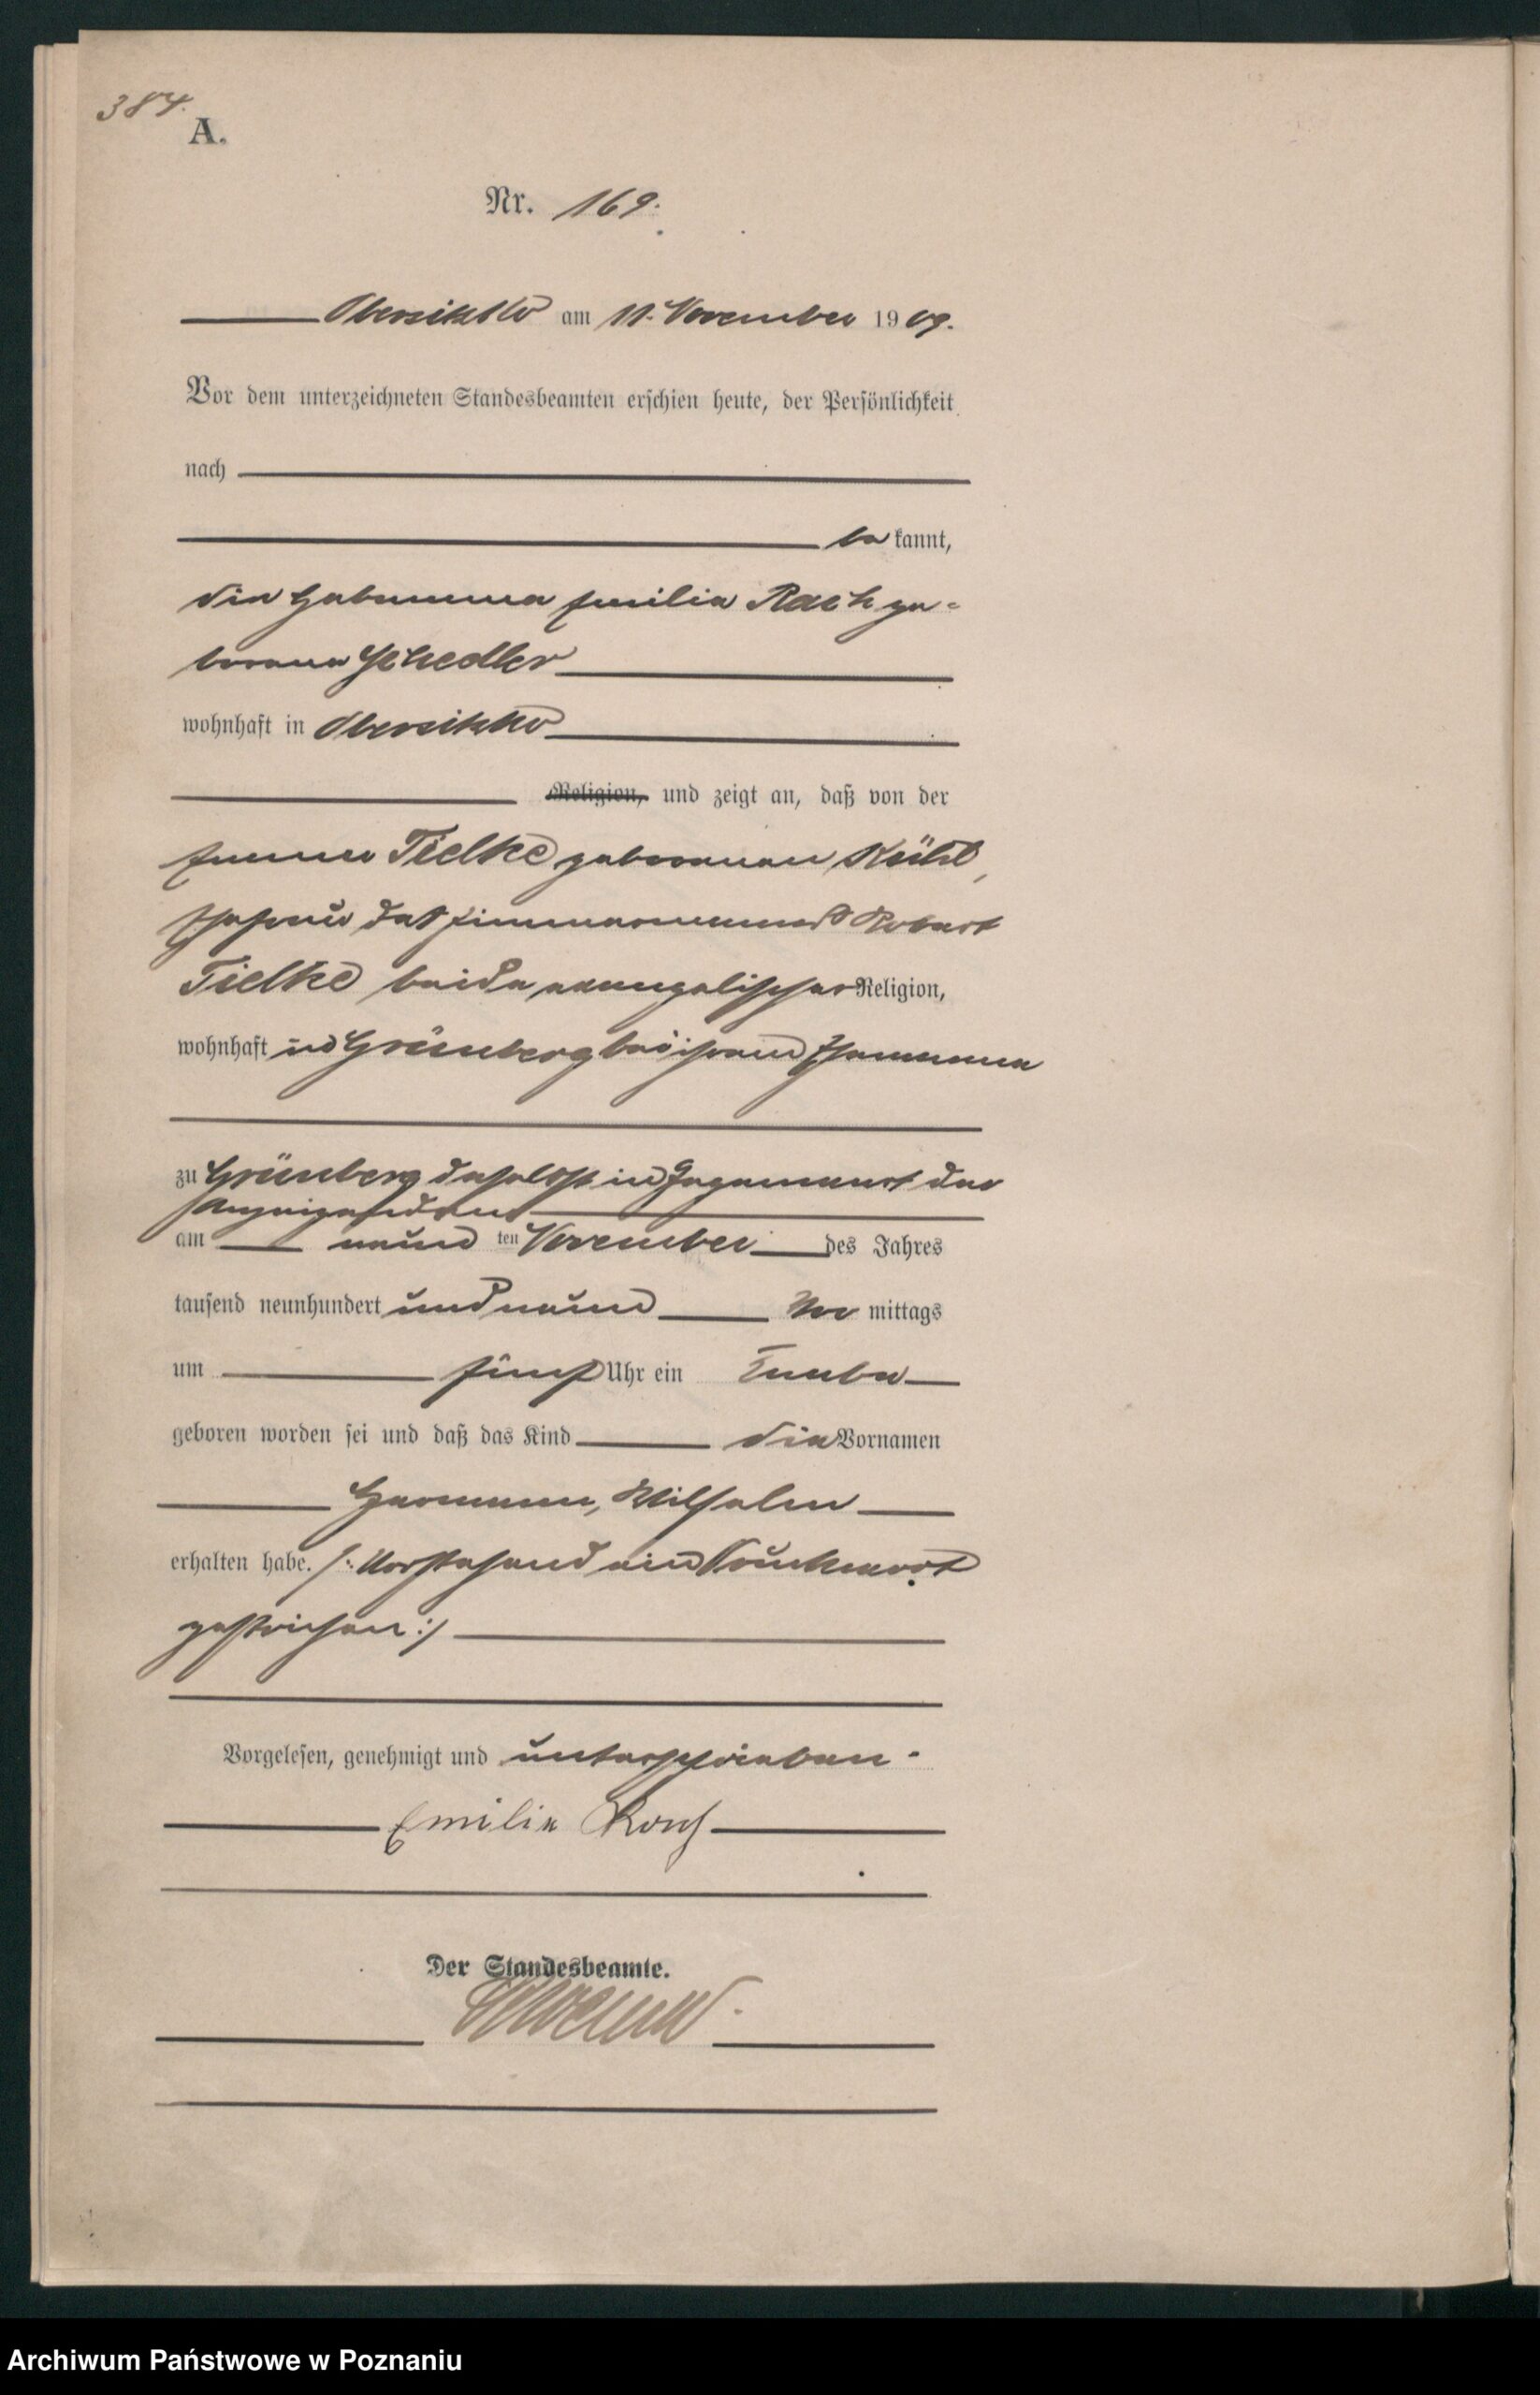 384.
A.
Nr. 169.
Obersitzko am 11. November 1909.
Vor dem unterzeichneten Standesbeamten erschien heute, der Persönlichkeit
nach
bekannt,
die Hebamme Emilie Rach ge=
borene Schedler
wohnhaft in Obersitzko
Religion, und zeigt an, daß von der
Emma Tielke geborenen Kühl,
Ehefrau des Zimmermanns Robert
Tielke beide evangelischer Religion,
wohnhaft in Grünberg bei ihrem Ehemanne
zu Grünberg daselbst in Gegenwart der
Anzeigenden
am neunten November des Jahres
tausend neunhundert und neun Vormittags
um fünf Uhr ein Knabe
geboren worden sei und daß das Kind die Vornamen
Hermann, Wilhelm
erhalten habe. /: Vorstehend ein Druckwort
gestrichen :/
Vorgelesen, genehmigt und unterschrieben.
Emilie Rach
Der Standesbeamte.
Archiwum Państwowe w Poznaniu